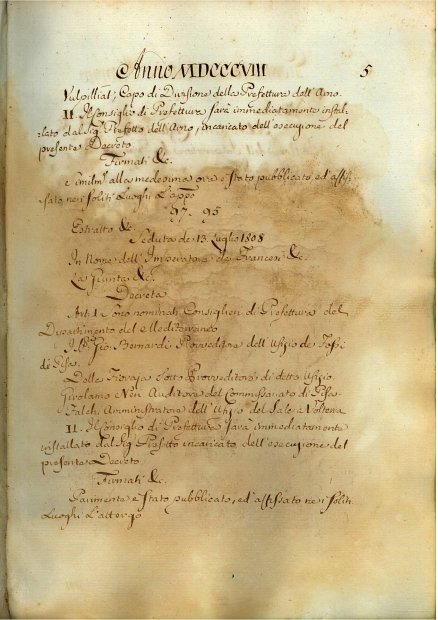 Anno MDCCCVIII 5
Vulpilliat; Capo di Divisione della Prefettura dell' Arno.
II Il Consiglio di Prefettura sarà immediatamente instal-
lato dal Sig. Prefetto dell' Arno, incaricato dell' esecuzione del
presente Decreto
Firmati &c.
e Similm. alla medesima ora e stato pubblicato, ed affis-
sato nei soliti Luoghi L'app.
97. 95
Estratto &c.
Seduta de 13 Luglio 1808
In Nome dell' Imperatore de Francesi &c.
La Giunta &c.
Decreta
Art. I Sono nominati Consiglieri di Prefettura del
Dipartimento del Mediterraneo
Gio. Bernardi Provveditore dell' Ufizio de Fossi
di Pisa.
Delle Sotto Provveditore di detto Ufizio
Girolamo Neri Auditore del Commissariato di Pisa
Falchi, Amministratore dell' Ufizio del Sale a Volterra
II. Il Consiglio di Prefettura sarà immediatamente
installato dal Sig Prefetto incaricato dell' esecuzione del
presente Decreto
Firmati &c.
Parimente e stato pubblicato, ed affissato nei soliti
Luoghi L'altergo